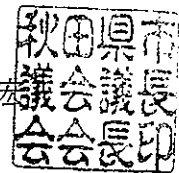 秋田県市
議会議長
会会長印